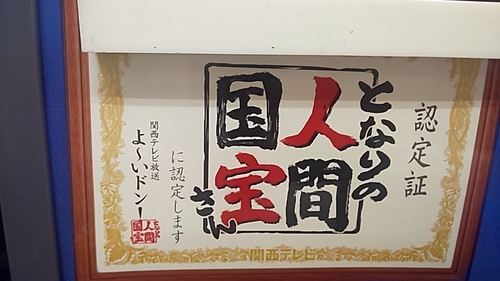 認定証
となりの
人間
国宝
さん
に認定します
関西テレビ放送
よ～いドン!
となりの
人間
国宝
関西テレビ